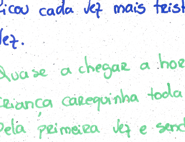 icou cada vez mais trist
vez.
Quase a chegar a hor
criança carequinha toda
pela primeira vez e send